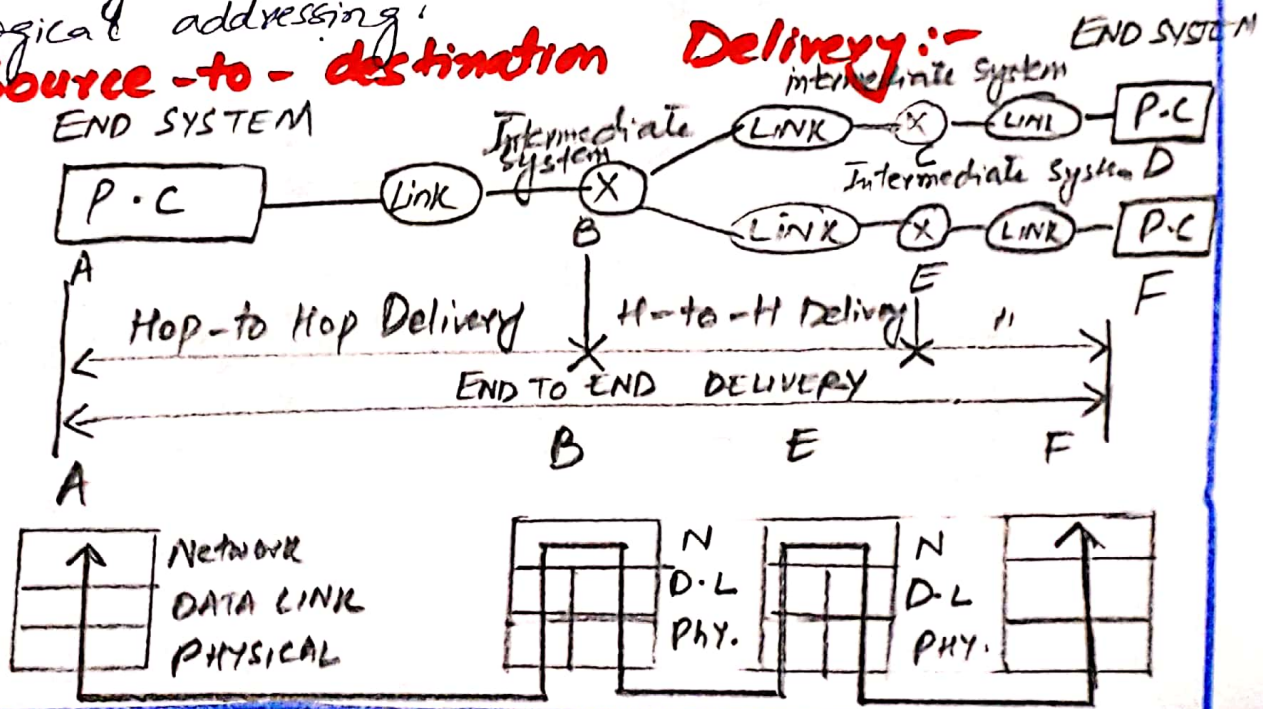 ogical addressing:
Source-to-destination Delivery:-
END SYSTEM
intermediate System
END SYSTEM
Intermediate
System
LINK
X
LINK
P.C
C
D
P.C
Link
X
Intermediate System
A
B
LINK
X
LINK
P.C
E
F
Hop-to Hop Delivery
H-to-H Delivery
"
END TO END DELIVERY
A
B
E
F
Network
DATA LINK
PHYSICAL
N
D.L
PHY.
N
D-L
PHY.